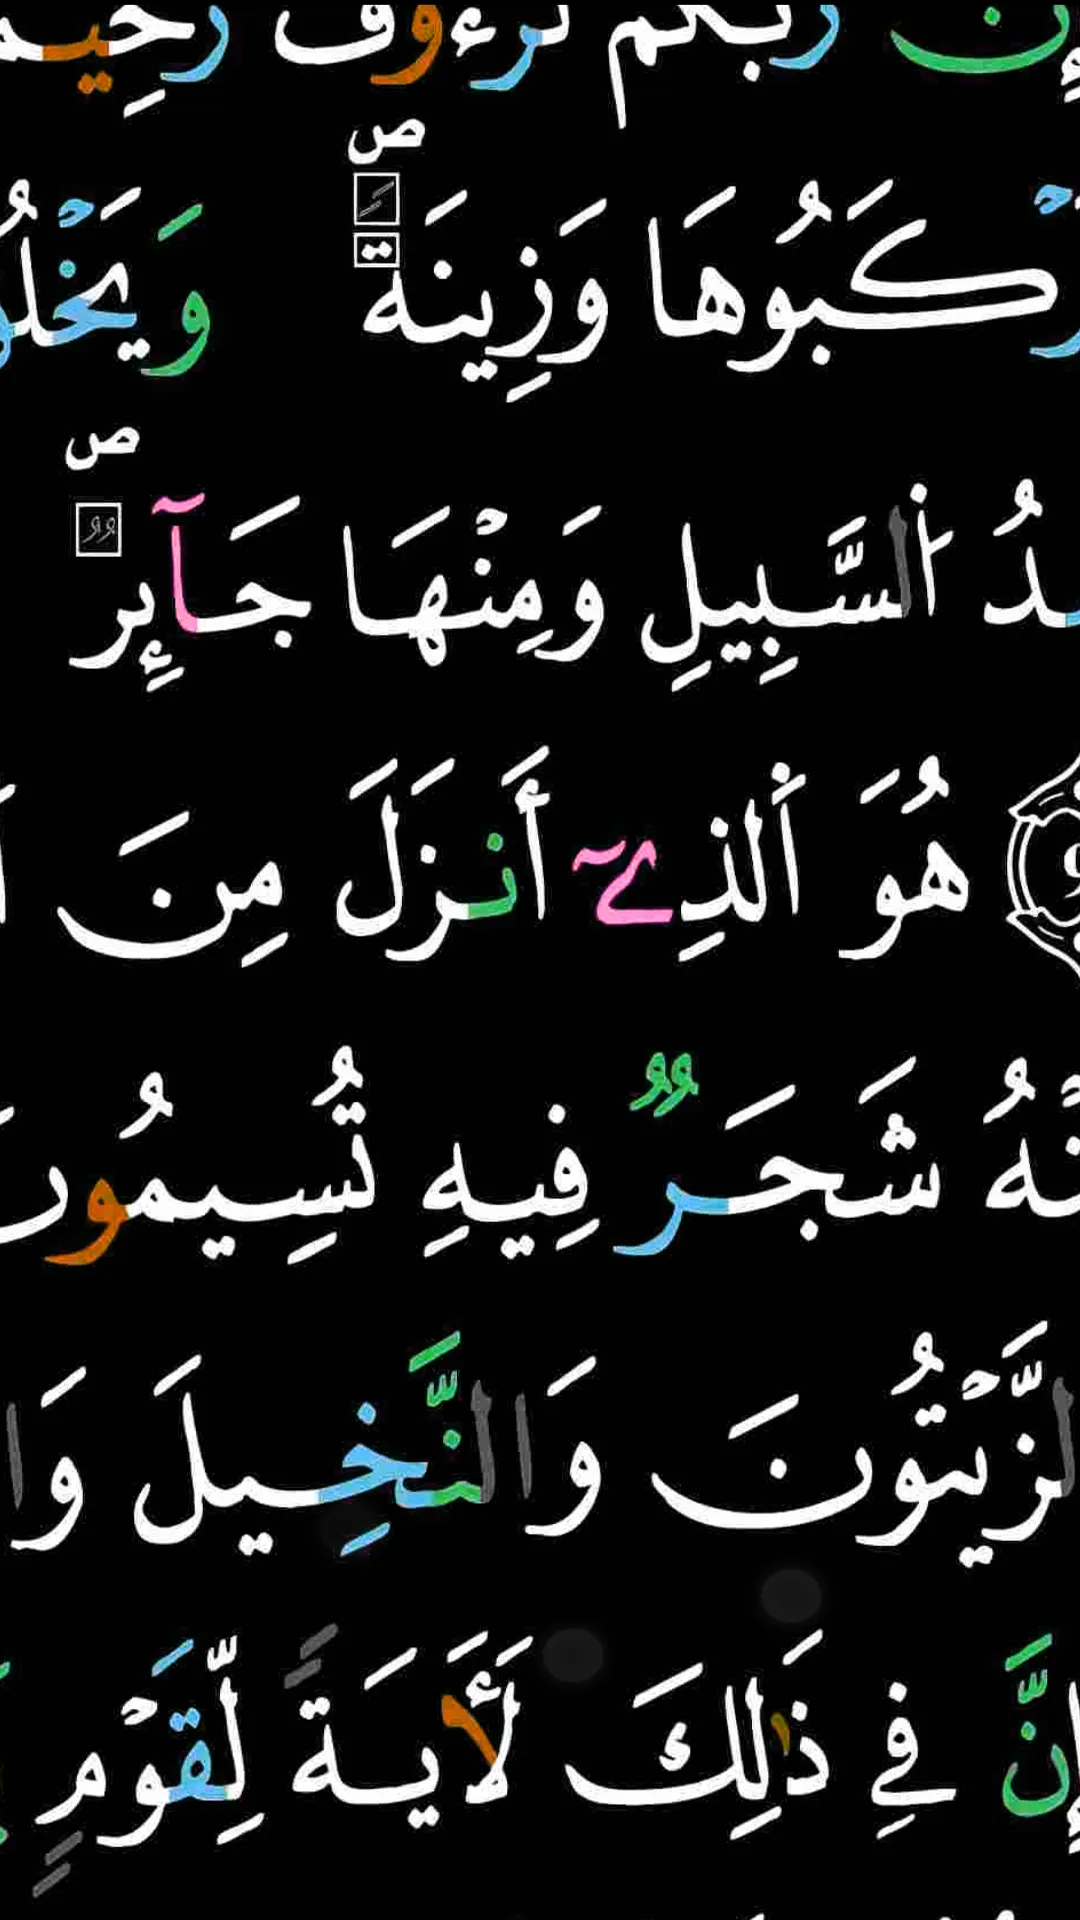 إِنَّ رَبَّكُمْ لَرَءُوفٌ رَحِيمٌ
رْكَبُوهَا وَزِينَةًۖ وَيَخْلُ
دُ اُ۬لسَّبِيلِ وَمِنْهَا جَآئِرٞۖ
هُوَ اَ۬لذِےٓ أَنزَلَ مِنَ
نْهُ شَجَرٞ فِيهِ تُسِيمُونَ
لزَّيْتُونَ وَالنَّخِيلَ وَا
إِنَّ فِے ذَٰلِكَ لَأٓيَةٗ لِّقَوْمٖ